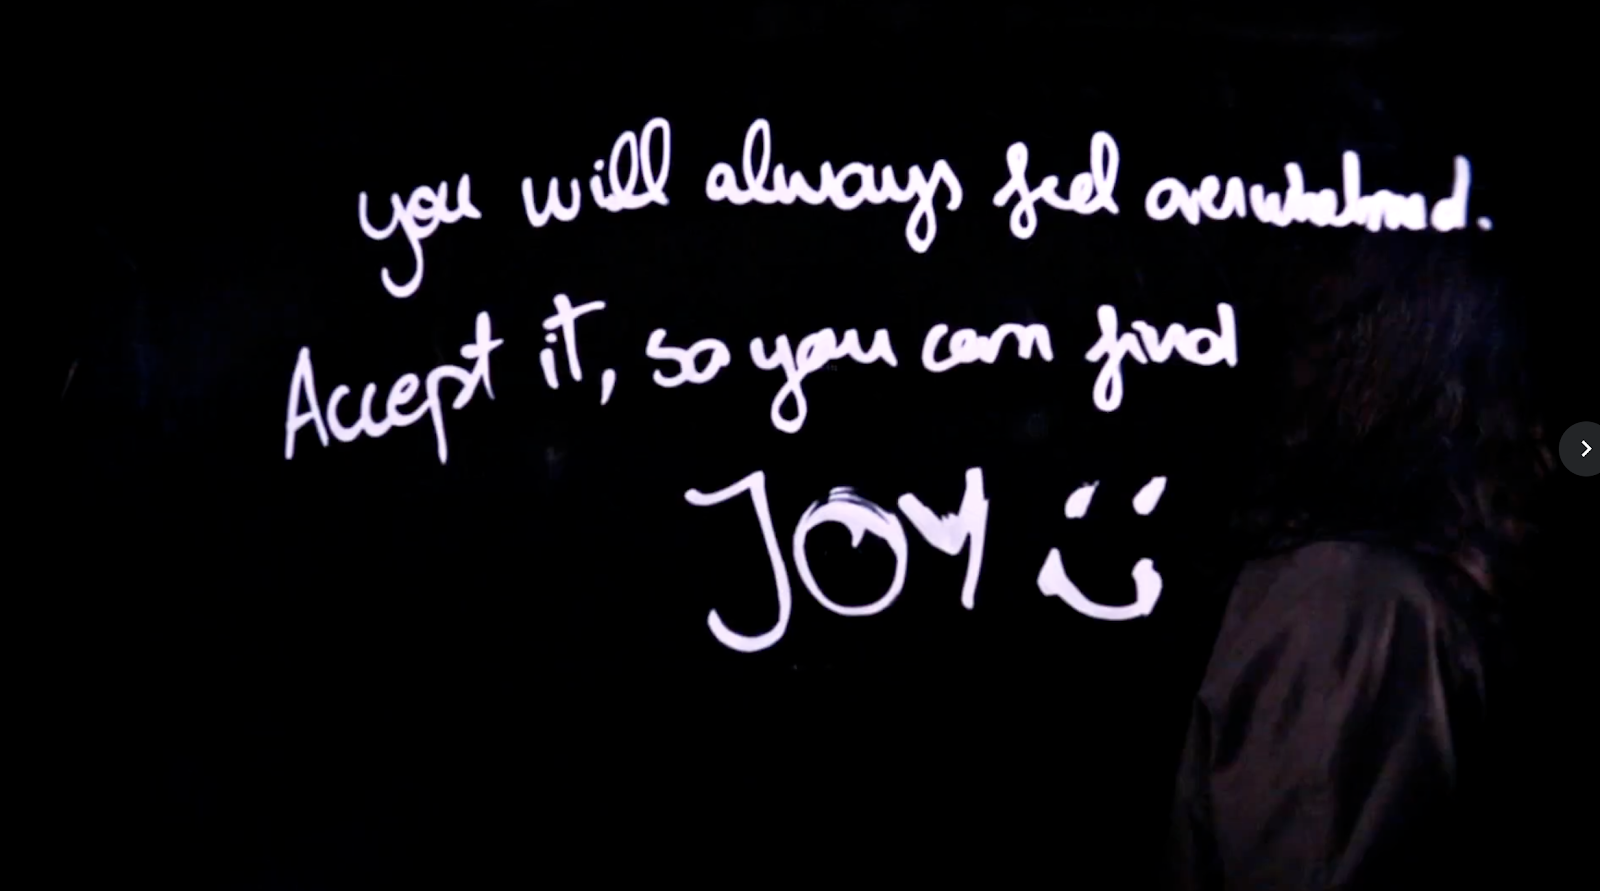 you will always feel overwhelmed.
Accept it, so you can find
JOY